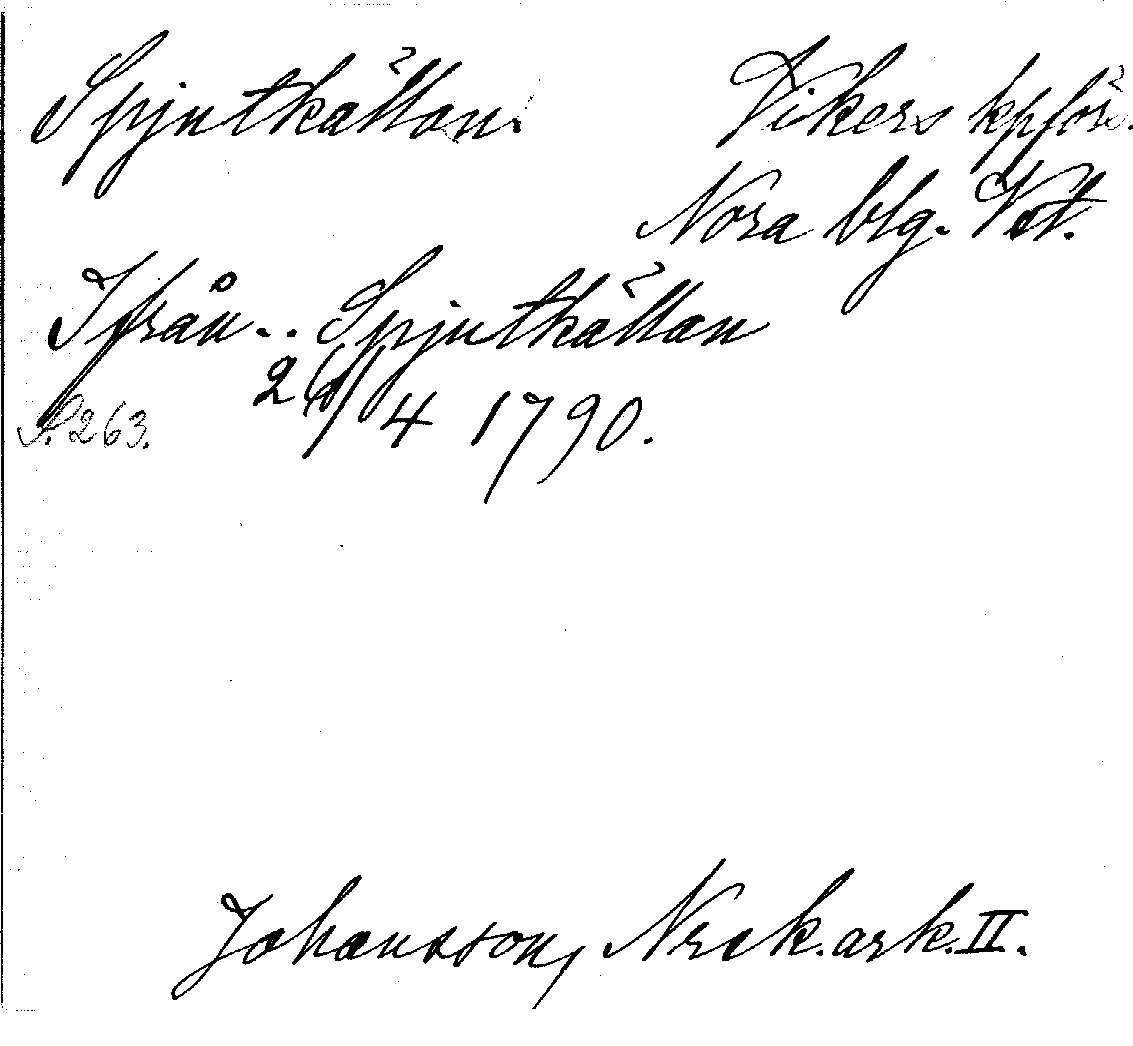 Spjutkällan. Vikers kpförs.
Nora blg. Vstl.
Ifrån .. Spjutkällan
S. 263. 26/4 1790.
Johansson, Nrck.ark.II.